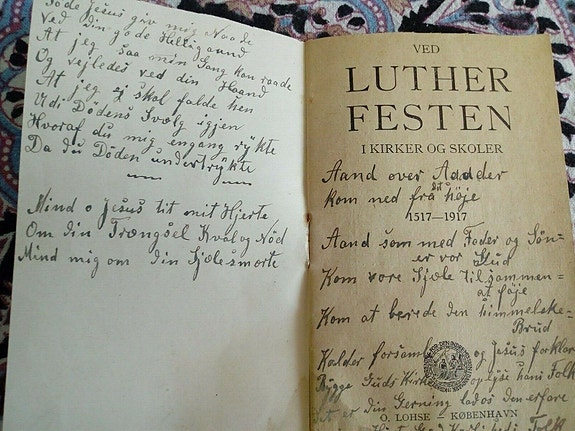 Söde Jesus giv mig Naade
Ved din gode Helligaand
At jeg saa min Gang kan raade
Og vejledes ved din Haand
At jeg ej skal falde hen
Udi Dödens Svælg igjen
Hvoraf du mig engang rykte
Da du Döden undertrykte
Mind o Jesus tit mit Hjerte
Om din Trængsel Kval og Nöd
Mind mig om din Sjælesmerte
VED
LUTHER
FESTEN
I KIRKER OG SKOLER
Aand over Aander
Kom ned fra det höje
1517—1917
Aand som med Fader og Sön
er vor Gud
Kom vore Sjæle tilsammen
at föje
Kom at berede den himmelske
Brud
Kalder forsaml og Jesus forklar
Bygge Guds Kirke og lyse hans Folk
Det er din Gerning lados den erfare
O. LOHSE — KØBENHAVN
Folk